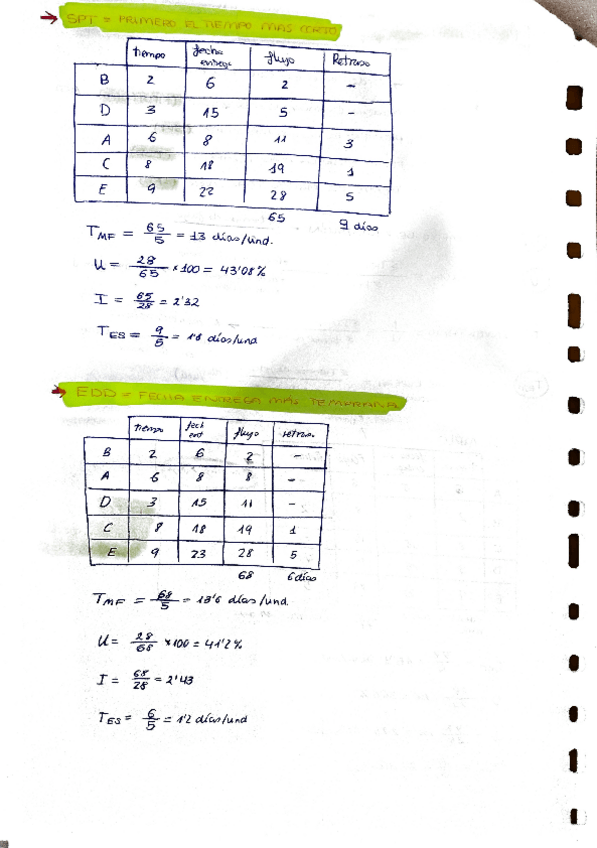 → SPT = PRIMERO EL TIEMPO MAS CORTO
tiempo fecha entrega flujo Retraso
B 2 6 2 -
D 3 15 5 -
A 6 8 11 3
C 8 18 19 1
E 9 22 28 5
65 9 días
TMF = 65/5 = 13 días/und.
U = 28/65 × 100 = 43'08%
I = 65/28 = 2'32
TES = 9/5 = 1'8 días/und
→ EDD = FECHA ENTREGA MÁS TEMPRANA
tiempo fech ent flujo retraso
B 2 6 2 -
A 6 8 8 -
D 3 15 11 -
C 8 18 19 1
E 9 23 28 5
68 6 días
TMF = 68/5 = 13'6 días/und.
U = 28/68 × 100 = 41'2%
I = 68/28 = 2'43
TES = 6/5 = 1'2 días/und